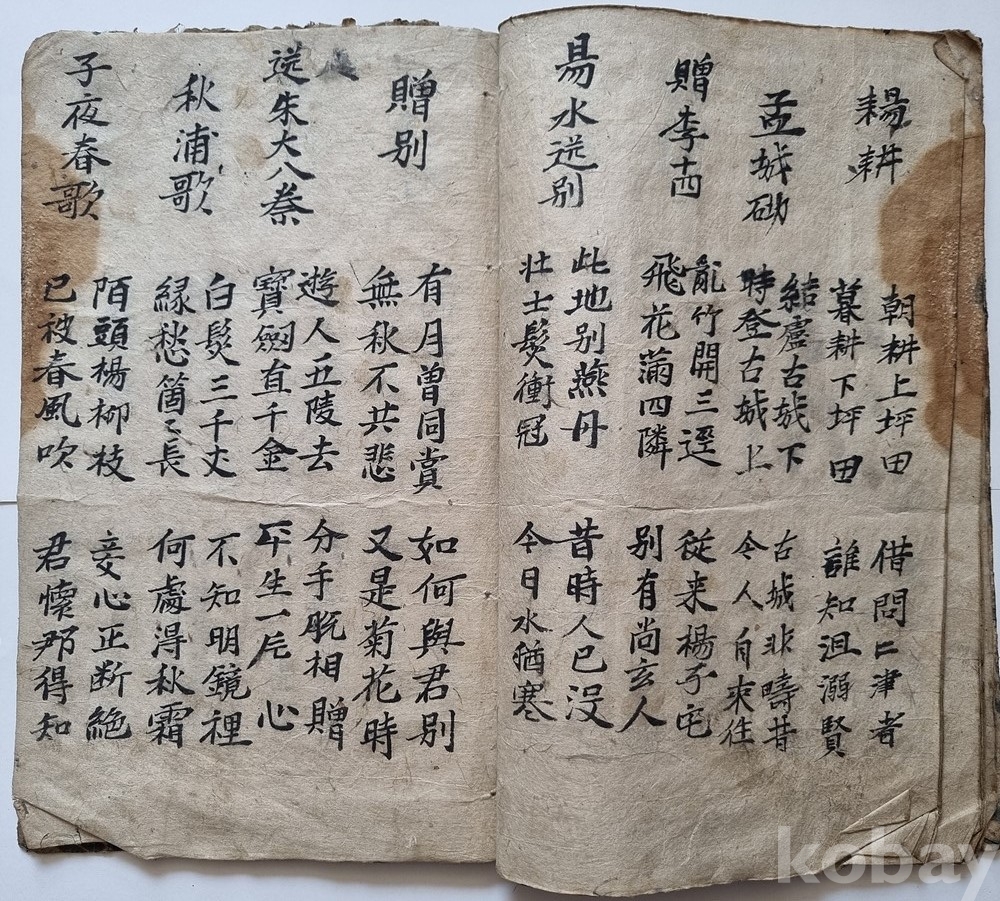 耦耕
朝耕上坪田
暮耕下坪田
借問亡津者
誰知沮溺賢
孟城砌
結廬古城下
時登古城上
古城非疇昔
今人自來往
贈李十四
亂竹開三逕
飛花滿四隣
從來楊子宅
別有尚玄人
易水送別
此地別燕丹
壮士髮衝冠
昔時人已沒
今日水猶寒
贈別
有月曾同賞
無秋不共悲
如何與君別
又是菊花時
送朱大入秦
遊人五陵去
寶劔直千金
分手脫相贈
平生一片心
秋浦歌
白髮三千丈
緣愁箇〻長
不知明鏡裡
何處得秋霜
子夜春歌
陌頭楊柳枝
已被春風吹
妾心正断絶
君懷那得知
kobay